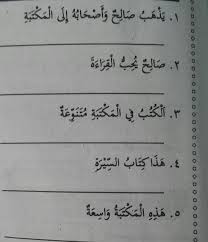 ١. يَذْهَبُ صَالِحٌ وَأَصْحَابُهُ إِلَى الْمَكْتَبَةِ
٢. صَالِحٌ يُحِبُّ الْقِرَاءَةَ
٣. اَلْكُتُبُ فِي الْمَكْتَبَةِ مُتَنَوِّعَةٌ
٤. هَذَا كِتَابُ السِّيْرَةِ
٥. هَذِهِ الْمَكْتَبَةُ وَاسِعَةٌ